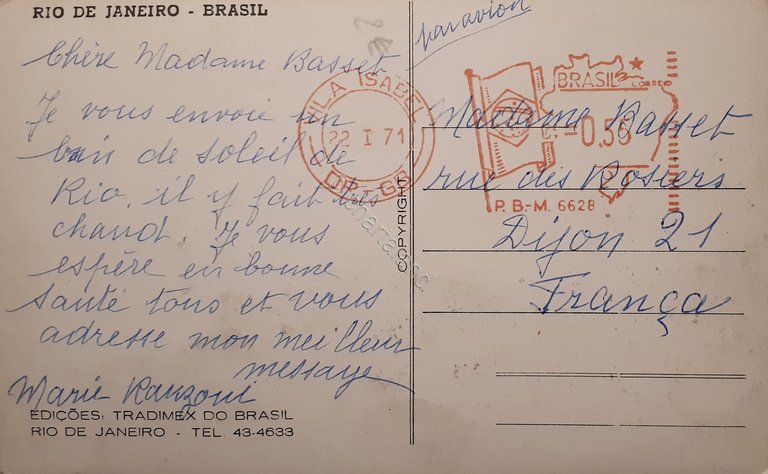 RIO DE JANEIRO - BRASIL
Chère Madame Basset
Je vous envoie un
bain de soleil de
Rio, il y fait très
chaud. Je vous
espère en bonne
santé tous et vous
adresse mon meilleur
message
Marie Ranzoni
EDIÇÕES: TRADIMEX DO BRASIL
RIO DE JANEIRO - TEL. 43-4633
COPYRIGHT
par avion
VILA ISABEL
22 I 71
DR-GB
BRASIL
CORREIO
0,50
P. B.-M. 6628
Madame Basset
rue des Rosiers
Dijon 21
França